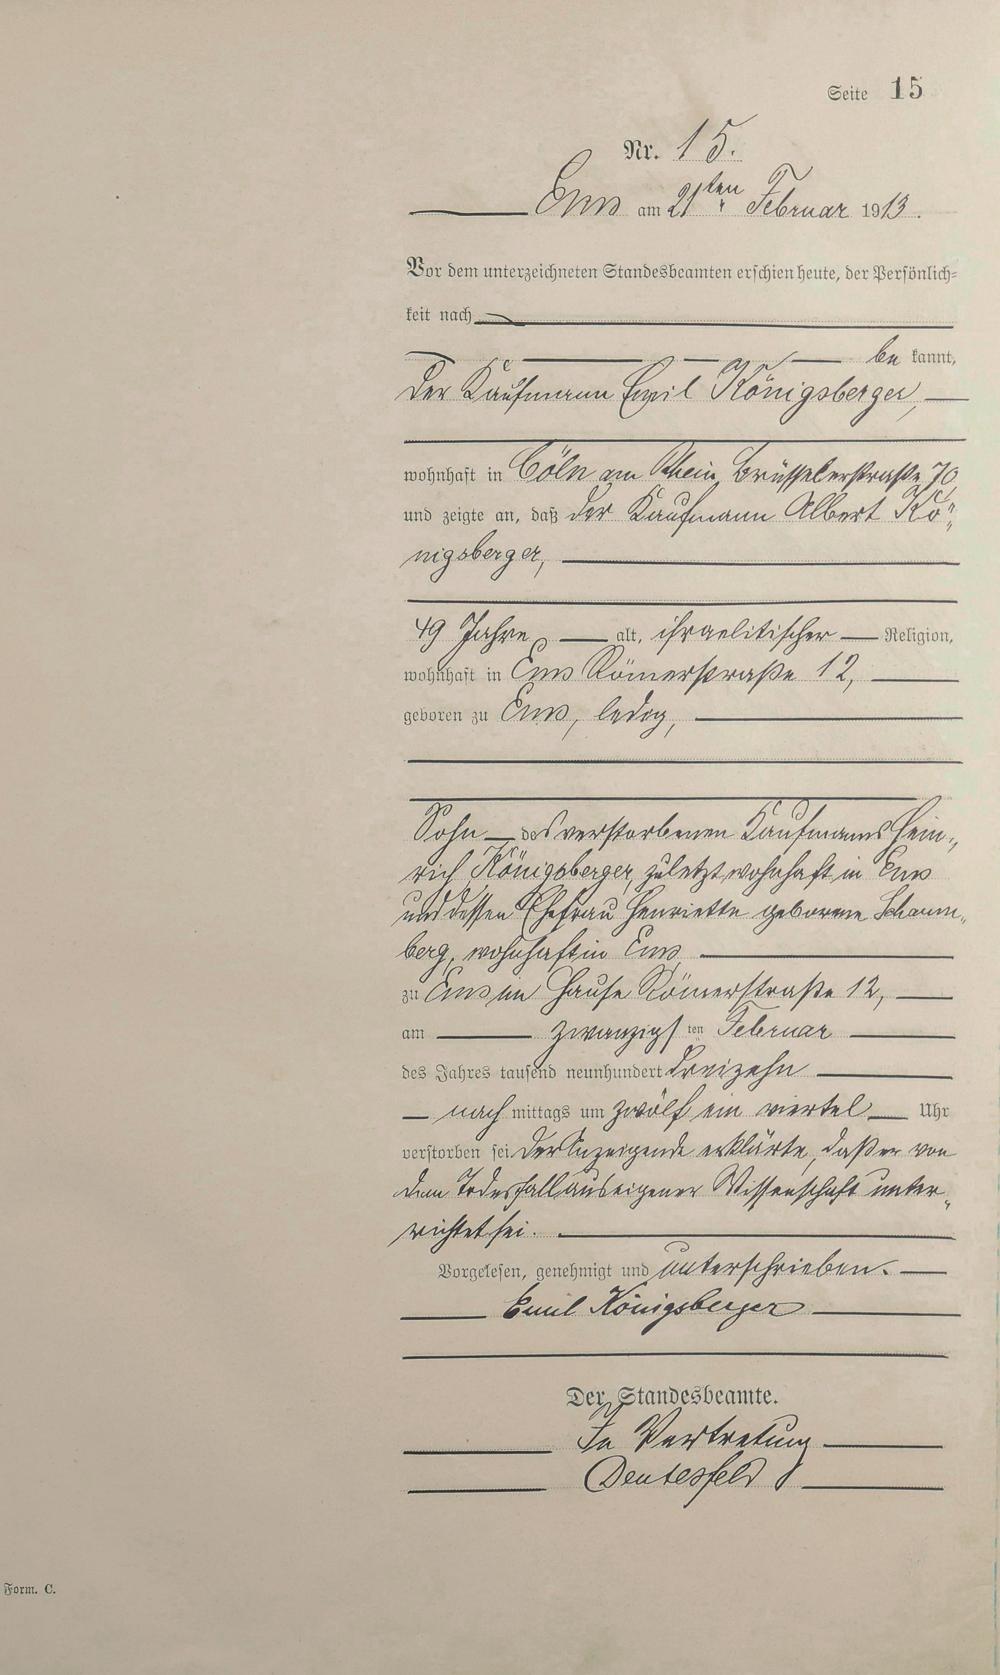 Seite 15
Nr. 15.
Ems am 21ten Februar 1913.
Vor dem unterzeichneten Standesbeamten erschien heute, der Persönlich=
keit nach
be kannt,
der Kaufmann Emil Königsberger,
wohnhaft in Cöln am Rhein, Brüsselerstraße 70,
und zeigte an, daß der Kaufmann Albert Kö=
nigsberger,
49 Jahre alt, israelitischer Religion,
wohnhaft in Ems Römerstraße 12,
geboren zu Ems, ledig,
Sohn des verstorbenen Kaufmanns Hein=
rich Königsberger, zuletzt wohnhaft in Ems
und dessen Ehefrau Henriette geborene Schaum=
berg, wohnhaft in Ems
zu Ems im Hause Römerstraße 12,
am zwanzigsten Februar
des Jahres tausend neunhundert dreizehn
nachmittags um zwölf ein viertel Uhr
verstorben sei. Der Anzeigende erklärte, daß er von
dem Todesfall aus eigener Wissenschaft unter=
richtet sei.
Vorgelesen, genehmigt und unterschrieben.
Emil Königsberger
Der Standesbeamte.
In Vertretung
Deutesfeld
Form. C.